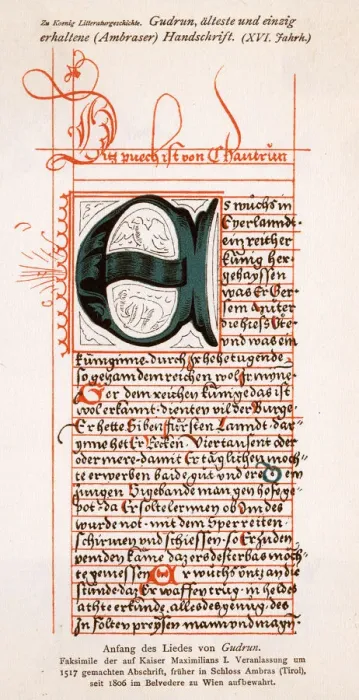 Zu Koenig Litteraturgeschichte. Gudrun, älteste und einzig
erhaltene (Ambraser) Handschrift. (XVI. Jahrh.)
Ditz puech ist von Chautrun
Es wuchs in
Eyerlanndt
ein reicher
künig her
gehayssen
was Er Ger
sein můter
die hiess Ůte
und was ein
küniginne · durch Jr hohe tugende
so gezam dem reichen wol Jr mynne ·
Ger dem reichen künige das ist
wol erkannt · dienten vil der Burge
Er hette Siben fürsten Lanndt · dar
ynne het Er Recken · Viertausent oder
oder mere · damit Er täglichen moch
te erwerben baide gůt und ere Dem
jungen Sigebande man gen hofe ge
pot · da Er solte lernen ob Im des
wurde not · mit dem Sper reiten
schirmen und schiessen · so Er zu den
veinden käme daz er es dester bas moch
te geniessen Er wuchs untz an die
stunde daz Er waffen trug · in heldes
achte er künde alles des genug · des
in solten preysen mann und mage
Anfang des Liedes von Gudrun.
Faksimile der auf Kaiser Maximilians I. Veranlassung um
1517 gemachten Abschrift, früher in Schloss Ambras (Tirol),
seit 1806 im Belvedere zu Wien aufbewahrt.